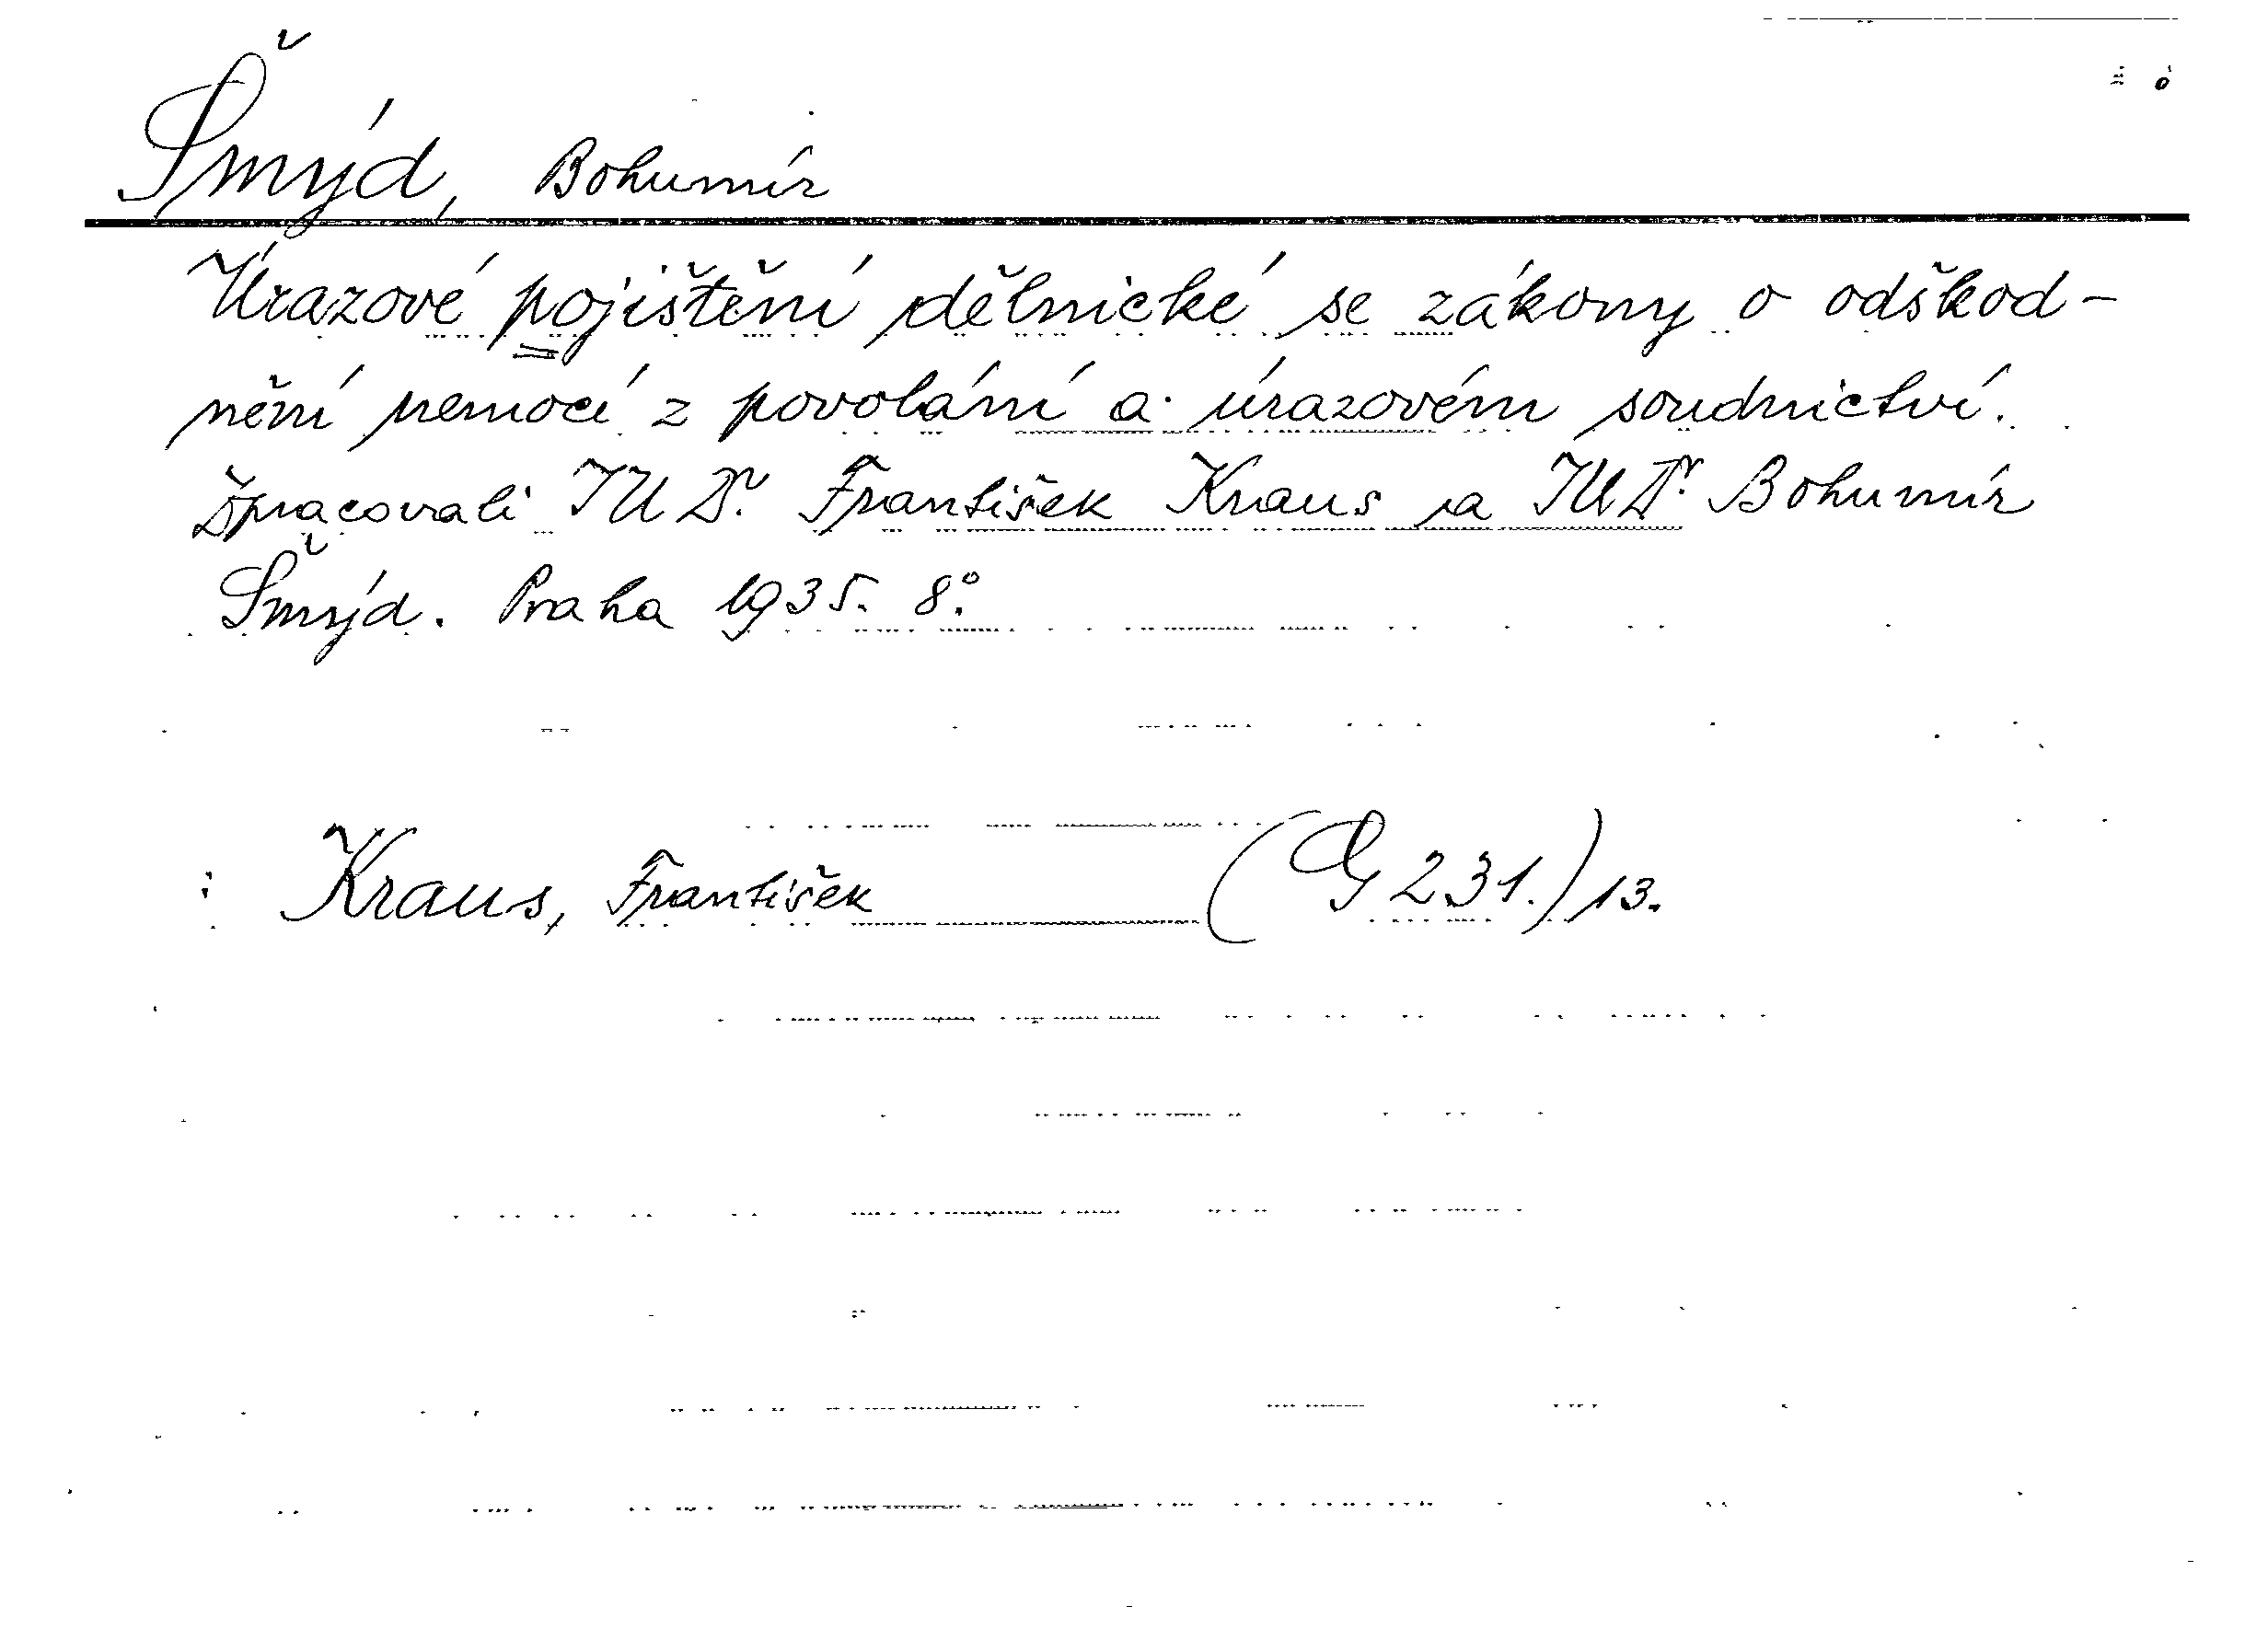 Šmýd, Bohumír
Úrazové pojištění dělnické se zákony o odškod-
nění nemocí z povolání a úrazovém soudnictví.
Zpracovali JUDr. František Kraus a JUDr. Bohumír
Šmýd. Praha 1935. 8°.
Kraus, František (G 231.)/13.